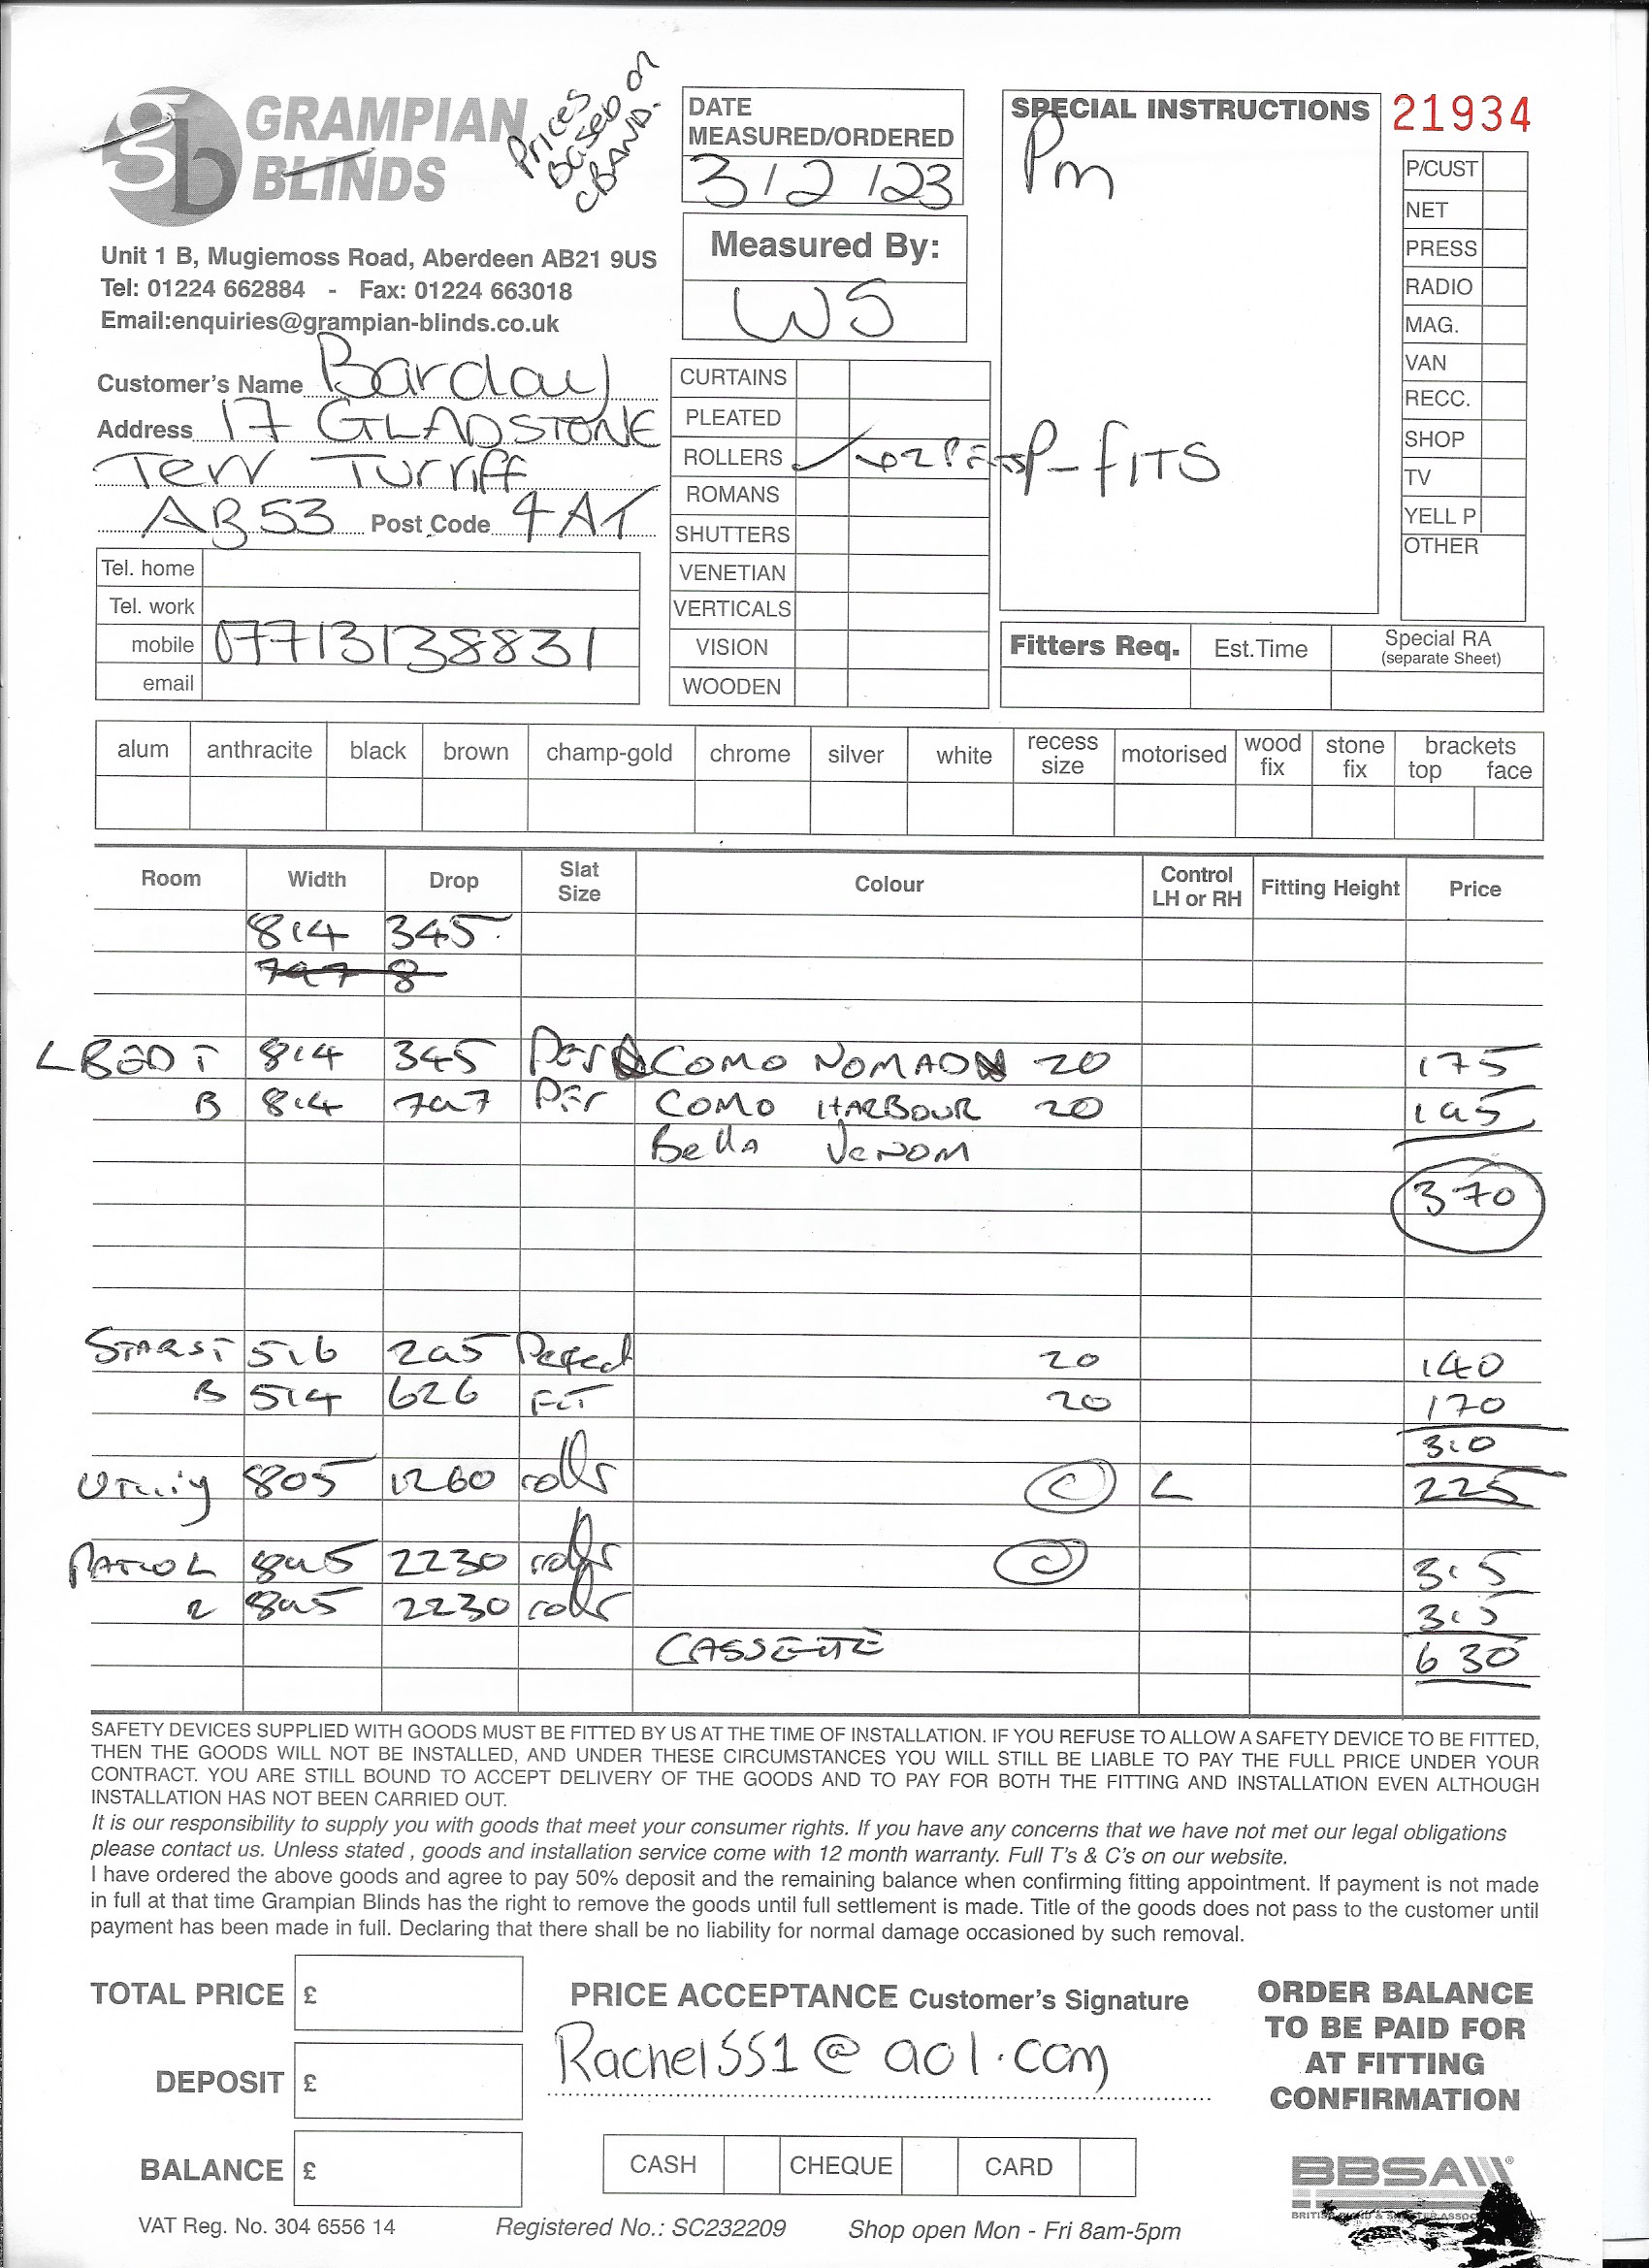 GRAMPIAN
BLINDS
Prices
based on
C BAND.
Unit 1 B, Mugiemoss Road, Aberdeen AB21 9US
Tel: 01224 662884 - Fax: 01224 663018
Email:enquiries@grampian-blinds.co.uk
DATE
MEASURED/ORDERED
3/2/23
Measured By:
WS
SPECIAL INSTRUCTIONS
Pm
P-fITS
21934
P/CUST
NET
PRESS
RADIO
MAG.
VAN
RECC.
SHOP
TV
YELL P
OTHER
Customer's Name Barclay
Address 17 GLADSTONE
Terr Turriff
AB53 Post Code 4AT
Tel. home
Tel. work
mobile 07713138831
email
CURTAINS
PLEATED
ROLLERS ✓
ROMANS
SHUTTERS
VENETIAN
VERTICALS
VISION
WOODEN
Fitters Req. Est.Time Special RA
(separate Sheet)
alum anthracite black brown champ-gold chrome silver white recess size motorised wood fix stone fix brackets top face
Room Width Drop Slat Size Colour Control LH or RH Fitting Height Price
814 345
797 8
L BED T 814 345 Per COMO NOMAD 20 175
B 814 797 Per COMO HARBOUR 20 195
Bella VENOM
370
STARS T 516 295 Perfect 20 140
B 514 626 FIT 20 170
310
Utility 805 1260 roller C L 225
PATIO L 895 2230 roller C 315
R 895 2230 roller 315
CASSETTE 630
SAFETY DEVICES SUPPLIED WITH GOODS MUST BE FITTED BY US AT THE TIME OF INSTALLATION. IF YOU REFUSE TO ALLOW A SAFETY DEVICE TO BE FITTED,
THEN THE GOODS WILL NOT BE INSTALLED, AND UNDER THESE CIRCUMSTANCES YOU WILL STILL BE LIABLE TO PAY THE FULL PRICE UNDER YOUR
CONTRACT. YOU ARE STILL BOUND TO ACCEPT DELIVERY OF THE GOODS AND TO PAY FOR BOTH THE FITTING AND INSTALLATION EVEN ALTHOUGH
INSTALLATION HAS NOT BEEN CARRIED OUT.
It is our responsibility to supply you with goods that meet your consumer rights. If you have any concerns that we have not met our legal obligations
please contact us. Unless stated , goods and installation service come with 12 month warranty. Full T's & C's on our website.
I have ordered the above goods and agree to pay 50% deposit and the remaining balance when confirming fitting appointment. If payment is not made
in full at that time Grampian Blinds has the right to remove the goods until full settlement is made. Title of the goods does not pass to the customer until
payment has been made in full. Declaring that there shall be no liability for normal damage occasioned by such removal.
TOTAL PRICE £
DEPOSIT £
BALANCE £
PRICE ACCEPTANCE Customer's Signature
Rachel551@aol.com
CASH CHEQUE CARD
ORDER BALANCE
TO BE PAID FOR
AT FITTING
CONFIRMATION
BBSA
VAT Reg. No. 304 6556 14
Registered No.: SC232209
Shop open Mon - Fri 8am-5pm